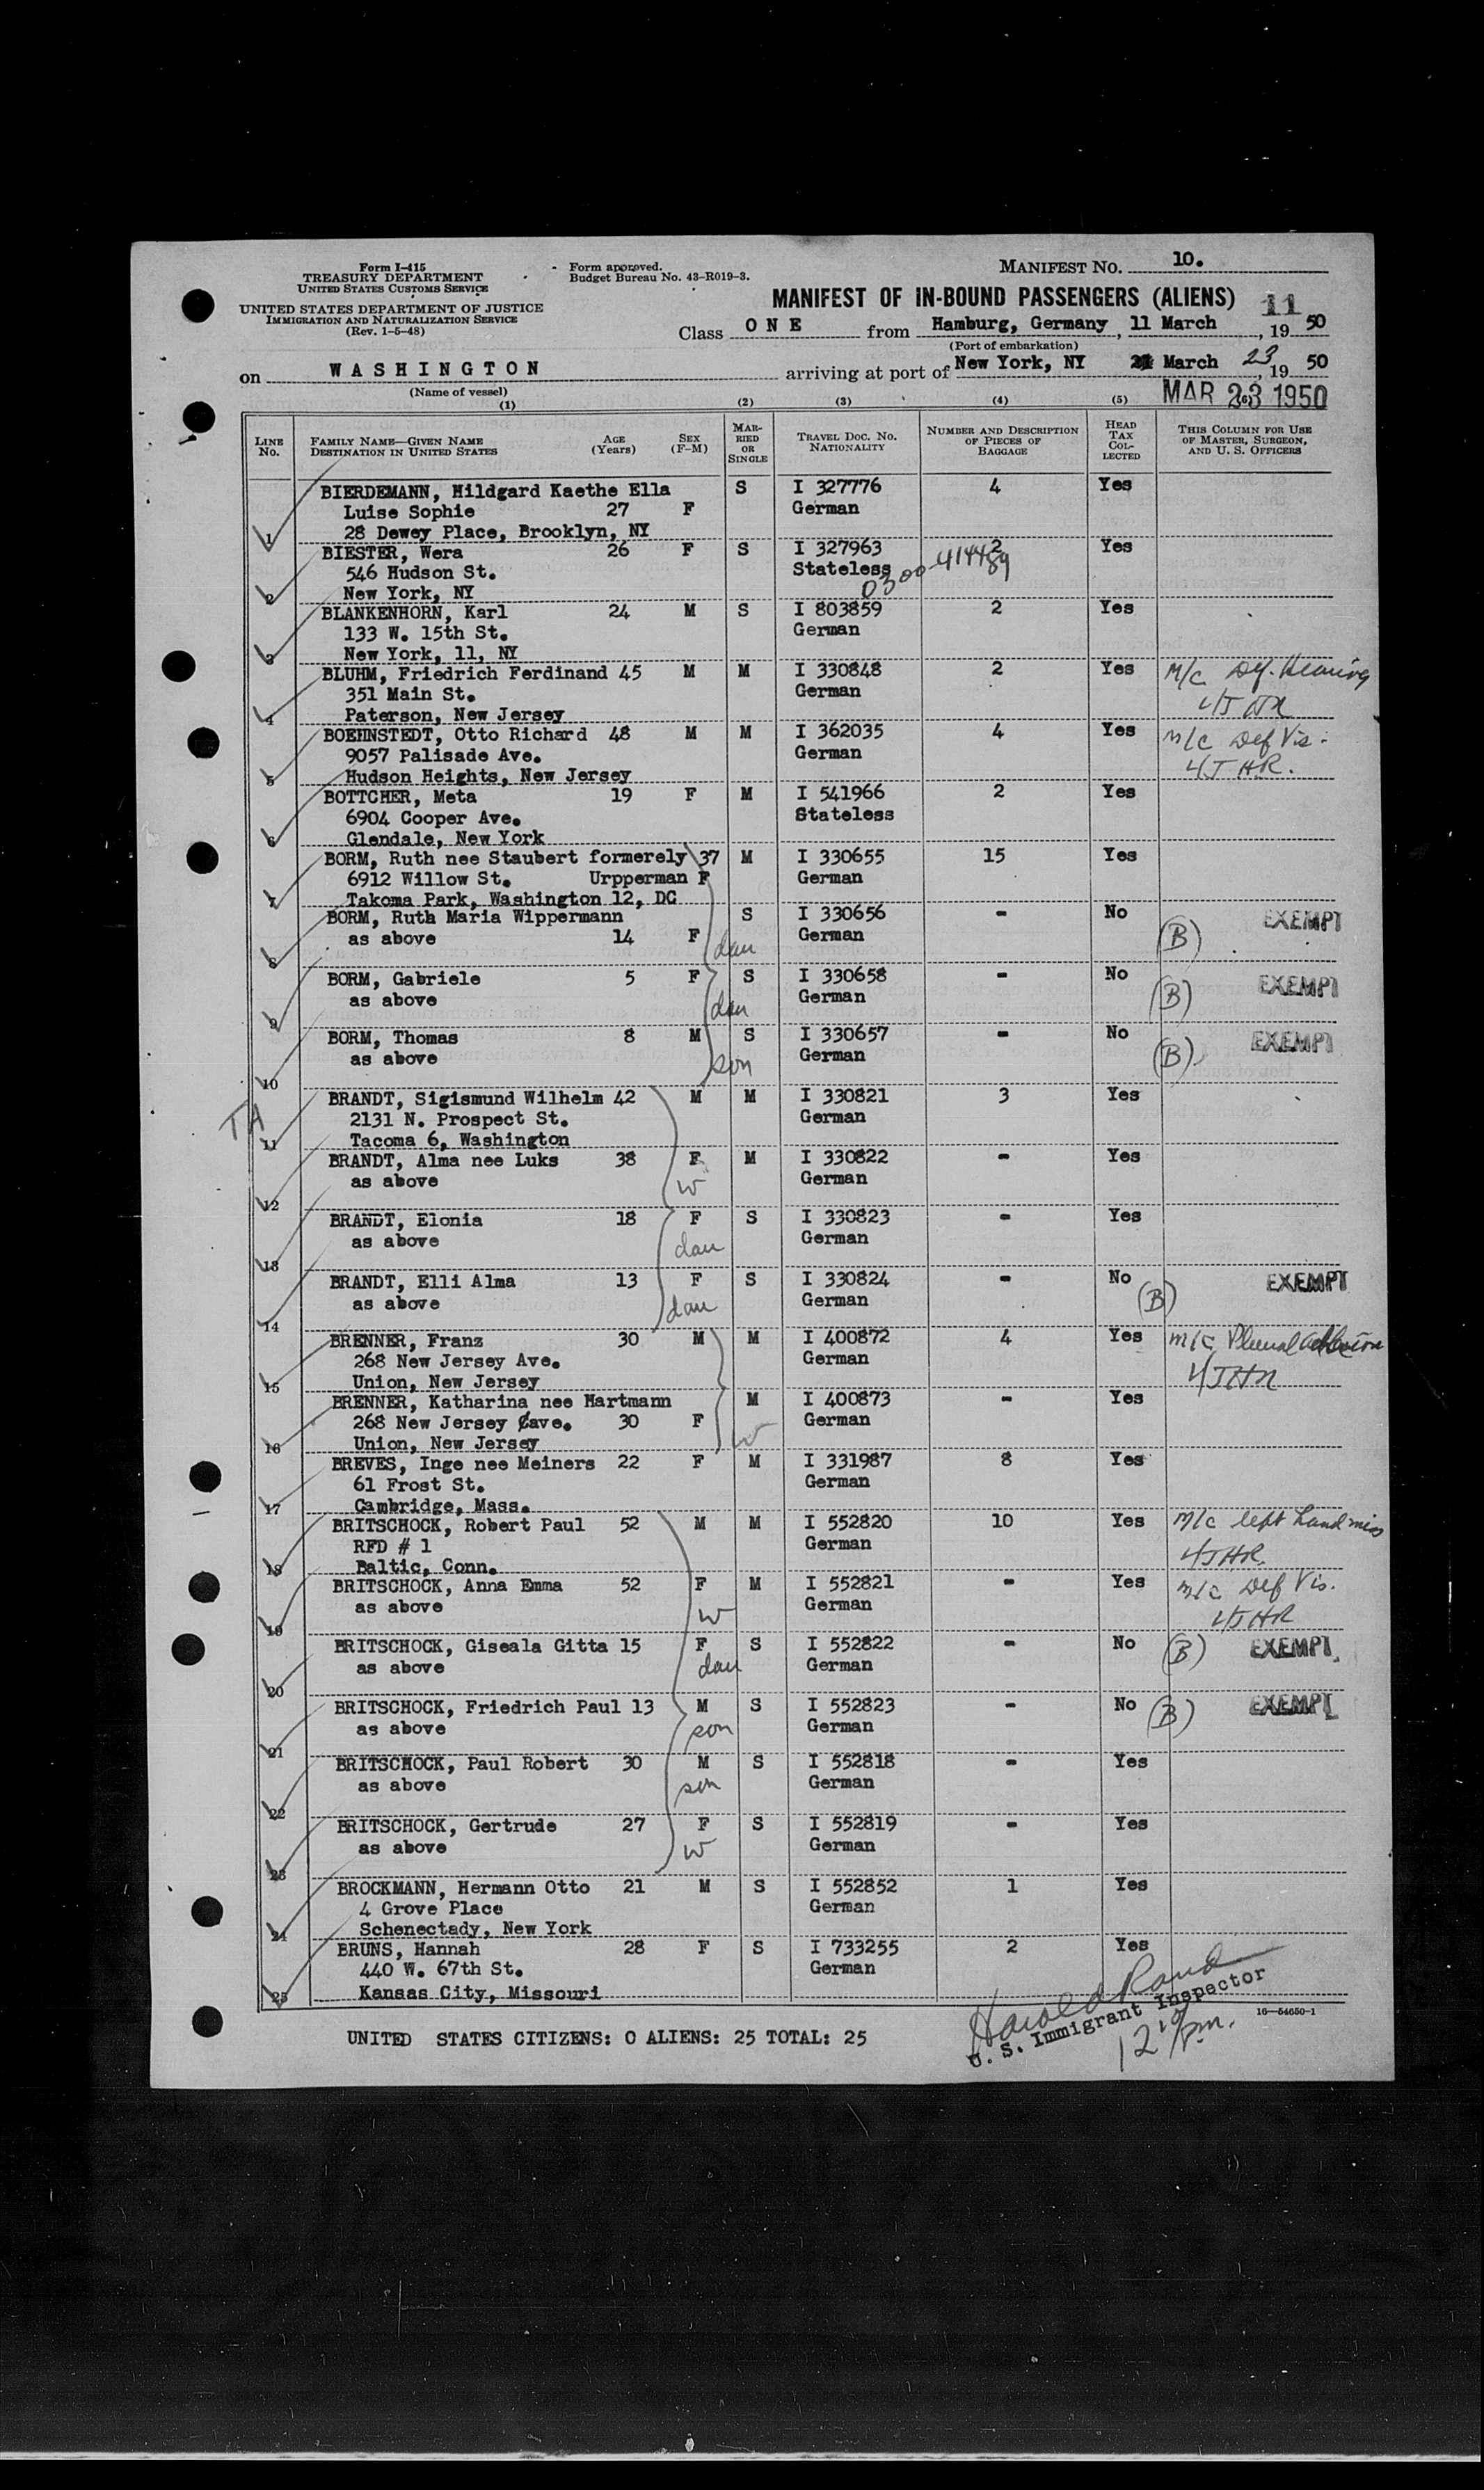 Form I-415
TREASURY DEPARTMENT
UNITED STATES CUSTOMS SERVICE
UNITED STATES DEPARTMENT OF JUSTICE
IMMIGRATION AND NATURALIZATION SERVICE
(Rev. 1-5-48)
Form approved.
Budget Bureau No. 43-R019-3.
MANIFEST NO. 10.
MANIFEST OF IN-BOUND PASSENGERS (ALIENS) 11
Class O N E from Hamburg, Germany, 11 March, 19 50
(Port of embarkation)
on W A S H I N G T O N arriving at port of New York, NY March 23, 19 50
(Name of vessel)
MAR 23 1950
(1) (2) (3) (4) (5) (6)
LINE No. FAMILY NAME—GIVEN NAME DESTINATION IN UNITED STATES AGE (Years) SEX (F-M) MARRIED OR SINGLE TRAVEL DOC. NO. NATIONALITY NUMBER AND DESCRIPTION OF PIECES OF BAGGAGE HEAD TAX COLLECTED THIS COLUMN FOR USE OF MASTER, SURGEON, AND U. S. OFFICERS
BIERDEMANN, Hildgard Kaethe Ella S I 327776 4 Yes
Luise Sophie 27 F German
1 28 Dewey Place, Brooklyn, NY
BIESTER, Wera 26 F S I 327963 2 Yes
546 Hudson St. Stateless 0300-414489
2 New York, NY
BLANKENHORN, Karl 24 M S I 803859 2 Yes
133 W. 15th St. German
3 New York, 11, NY
BLUHM, Friedrich Ferdinand 45 M M I 330848 2 Yes M/C Def. Hearing
351 Main St. German
4 Paterson, New Jersey
BOEHNSTEDT, Otto Richard 48 M M I 362035 4 Yes M/C Def Vis.
9057 Palisade Ave. German 4J HR.
5 Hudson Heights, New Jersey
BOTTCHER, Meta 19 F M I 541966 2 Yes
6904 Cooper Ave. Stateless
6 Glendale, New York
BORM, Ruth nee Staubert formerely 37 M I 330655 15 Yes
6912 Willow St. Urpperman F German
7 Takoma Park, Washington 12, DC
BORM, Ruth Maria Wippermann S I 330656 - No EXEMPT
as above 14 F German (B)
8 dau
BORM, Gabriele 5 F S I 330658 - No EXEMPT
as above German (B)
9 dau
BORM, Thomas 8 M S I 330657 - No EXEMPT
as above German (B)
10 son
TA
BRANDT, Sigismund Wilhelm 42 M M I 330821 3 Yes
2131 N. Prospect St. German
11 Tacoma 6, Washington
BRANDT, Alma nee Luks 38 F M I 330822 - Yes
as above w German
12
BRANDT, Elonia 18 F S I 330823 - Yes
as above dau German
13
BRANDT, Elli Alma 13 F S I 330824 - No EXEMPT
as above dau German (B)
14
BRENNER, Franz 30 M M I 400872 4 Yes M/C Pleural Adhesion
268 New Jersey Ave. German
15 Union, New Jersey
BRENNER, Katharina nee Hartmann M I 400873 - Yes
268 New Jersey ave. 30 F German
16 Union, New Jersey w
BREVES, Inge nee Meiners 22 F M I 331987 8 Yes
61 Frost St. German
17 Cambridge, Mass.
BRITSCHOCK, Robert Paul 52 M M I 552820 10 Yes M/C left hand
RFD # 1 German 4J HR.
18 Baltic, Conn.
BRITSCHOCK, Anna Emma 52 F M I 552821 - Yes M/C Def Vis.
as above w German 4J HR
19
BRITSCHOCK, Giseala Gitta 15 F S I 552822 - No (B) EXEMPT
as above dau German
20
BRITSCHOCK, Friedrich Paul 13 M S I 552823 - No (B) EXEMPT
as above son German
21
BRITSCHOCK, Paul Robert 30 M S I 552818 - Yes
as above son German
22
BRITSCHOCK, Gertrude 27 F S I 552819 - Yes
as above w German
23
BROCKMANN, Hermann Otto 21 M S I 552852 1 Yes
4 Grove Place German
24 Schenectady, New York
BRUNS, Hannah 28 F S I 733255 2 Yes
440 W. 67th St. German
25 Kansas City, Missouri
Harold Rand
U. S. Immigrant Inspector
16—54650-1
UNITED STATES CITIZENS: 0 ALIENS: 25 TOTAL: 25